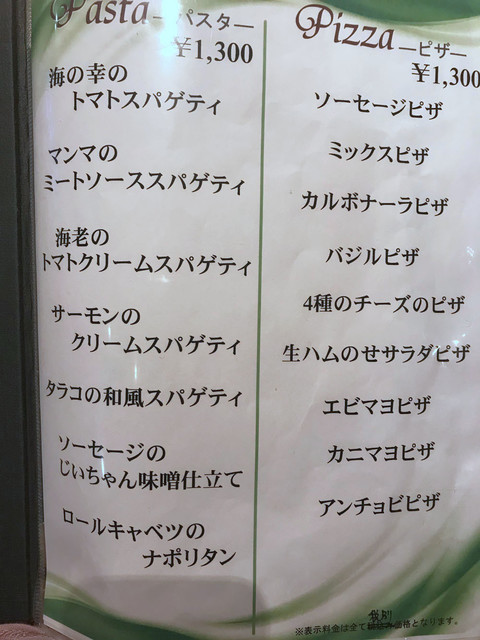 Pasta —パスタ—
¥1,300
海の幸の
トマトスパゲティ
マンマの
ミートソーススパゲティ
海老の
トマトクリームスパゲティ
サーモンの
クリームスパゲティ
タラコの和風スパゲティ
ソーセージの
じいちゃん味噌仕立て
ロールキャベツの
ナポリタン
Pizza —ピザ—
¥1,300
ソーセージピザ
ミックスピザ
カルボナーラピザ
バジルピザ
4種のチーズのピザ
生ハムのせサラダピザ
エビマヨピザ
カニマヨピザ
アンチョビピザ
税別
※表示料金は全て税込み価格となります。